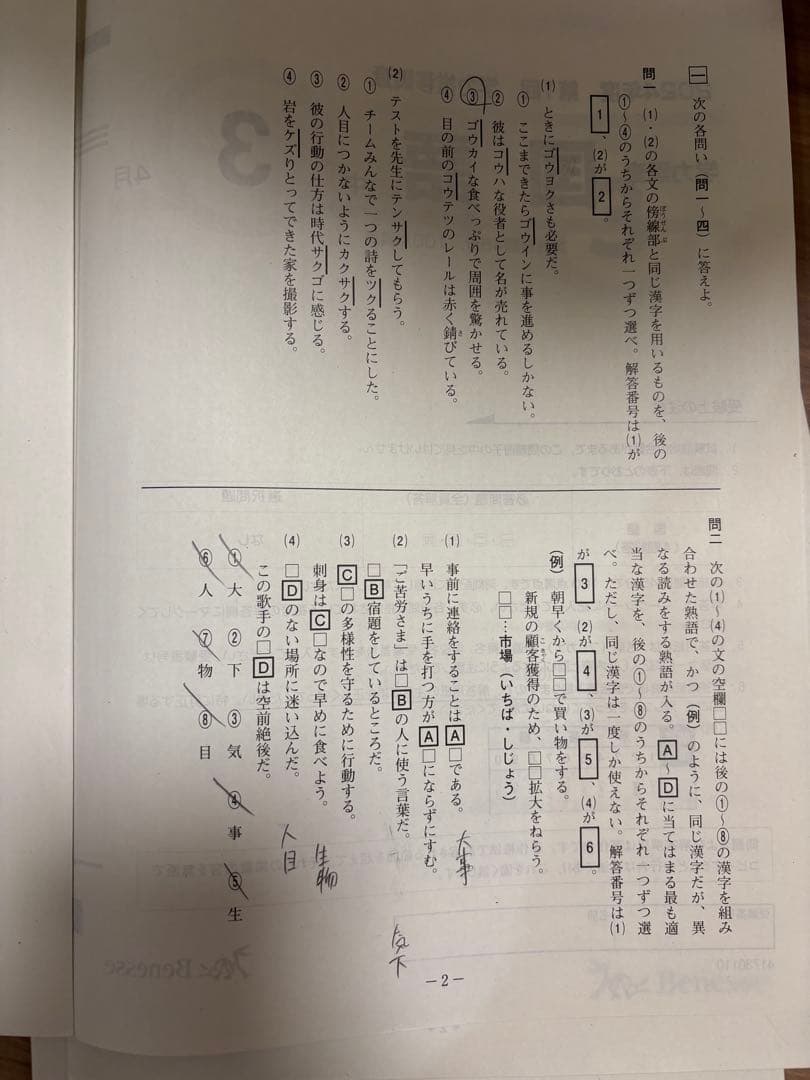 一 次の各問い(問一～四)に答えよ。
問一 (1)・(2)の各文の傍線部と同じ漢字を用いるものを、後の
①～④のうちからそれぞれ一つずつ選べ。解答番号は(1)が
1、(2)が2。
(1) ときにゴウヨクさも必要だ。
① ここまできたらゴウインに事を進めるしかない。
② 彼はコウハな役者として名が売れている。
③ ゴウカイな食べっぷりで周囲を驚かせる。
④ 目の前のコウテツのレールは赤く錆びている。
(2) テストを先生にテンサクしてもらう。
① チームみんなで一つの詩をツクることにした。
② 人目につかないようにカクサクする。
③ 彼の行動の仕方は時代サクゴに感じる。
④ 岩をケズりとってできた家を撮影する。
問二 次の(1)～(4)の文の空欄□□には後の①～⑧の漢字を組み
合わせた熟語で、かつ(例)のように、同じ漢字だが、異
なる読みをする熟語が入る。A～Dに当てはまる最も適
当な漢字を、後の①～⑧のうちからそれぞれ一つずつ選
べ。ただし、同じ漢字は一度しか使えない。解答番号は(1)
が3、(2)が4、(3)が5、(4)が6。
(例) 朝早くから□□で買い物をする。
新規の顧客獲得のため、□□拡大をねらう。
□□…市場(いちば・しじょう)
(1) 事前に連絡をすることはA□である。
早いうちに手を打つ方がA□にならずにすむ。
大事
(2) 「ご苦労さま」は□Bの人に使う言葉だ。
□B宿題をしているところだ。
下
(3) C□の多様性を守るために行動する。
刺身はC□なので早めに食べよう。
生物
(4) □Dのない場所に迷い込んだ。
この歌手の□Dは空前絶後だ。
人目
① 大 ② 下 ③ 気 ④ 事 ⑤ 生
⑥ 人 ⑦ 物 ⑧ 目
－2－